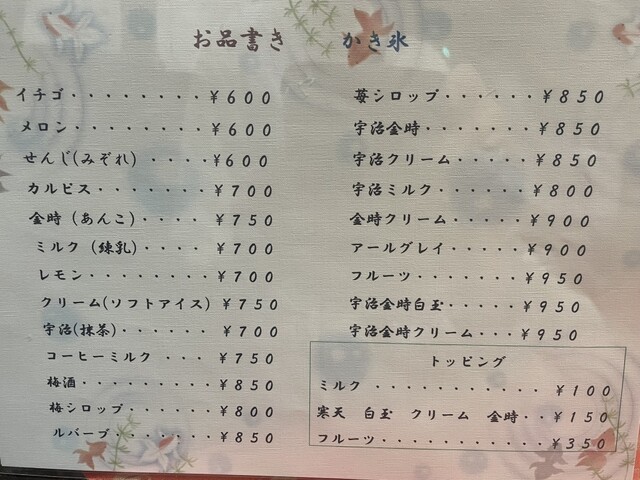 お品書き　かき氷
イチゴ・・・・・・・・¥600
メロン・・・・・・・・¥600
せんじ(みぞれ)・・・・¥600
カルピス・・・・・・・¥700
金時（あんこ）・・・・¥750
ミルク（練乳）・・・・¥700
レモン・・・・・・・・¥700
クリーム(ソフトアイス)¥750
宇治(抹茶)・・・・・・¥700
コーヒーミルク・・・¥750
梅酒・・・・・・・・・¥850
梅シロップ・・・・・・¥800
ルバーブ・・・・・・・¥850
苺シロップ・・・・・・¥850
宇治金時・・・・・・・¥850
宇治クリーム・・・・・¥850
宇治ミルク・・・・・・¥800
金時クリーム・・・・・¥900
アールグレイ・・・・・¥900
フルーツ・・・・・・・¥950
宇治金時白玉・・・・・¥950
宇治金時クリーム・・・¥950
トッピング
ミルク・・・・・・・・・・・¥100
寒天　白玉　クリーム　金時・・¥150
フルーツ・・・・・・・・・・・¥350